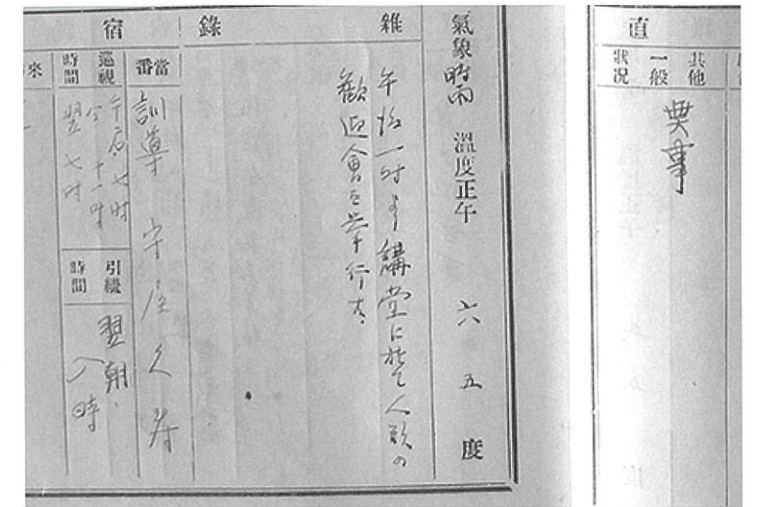 氣象 時雨 溫度正午 六五度
雜錄
午後一時ヨリ講堂に於て人形の
歓迎會を挙行す、
宿
當番
訓導 守屋久寿
巡視時間
午后、七時
仝 十一時
翌 七時
引繼時間
翌朝、
八時
來
直
其他一般狀況
無事